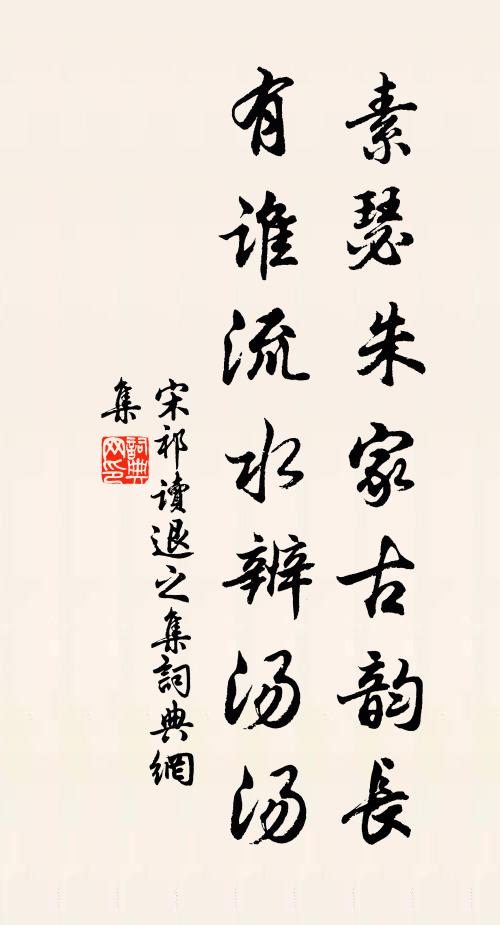 素瑟朱家古韵長
有谁流水辨汤汤
宋祁讀退之集詞典網
集
詞典网印